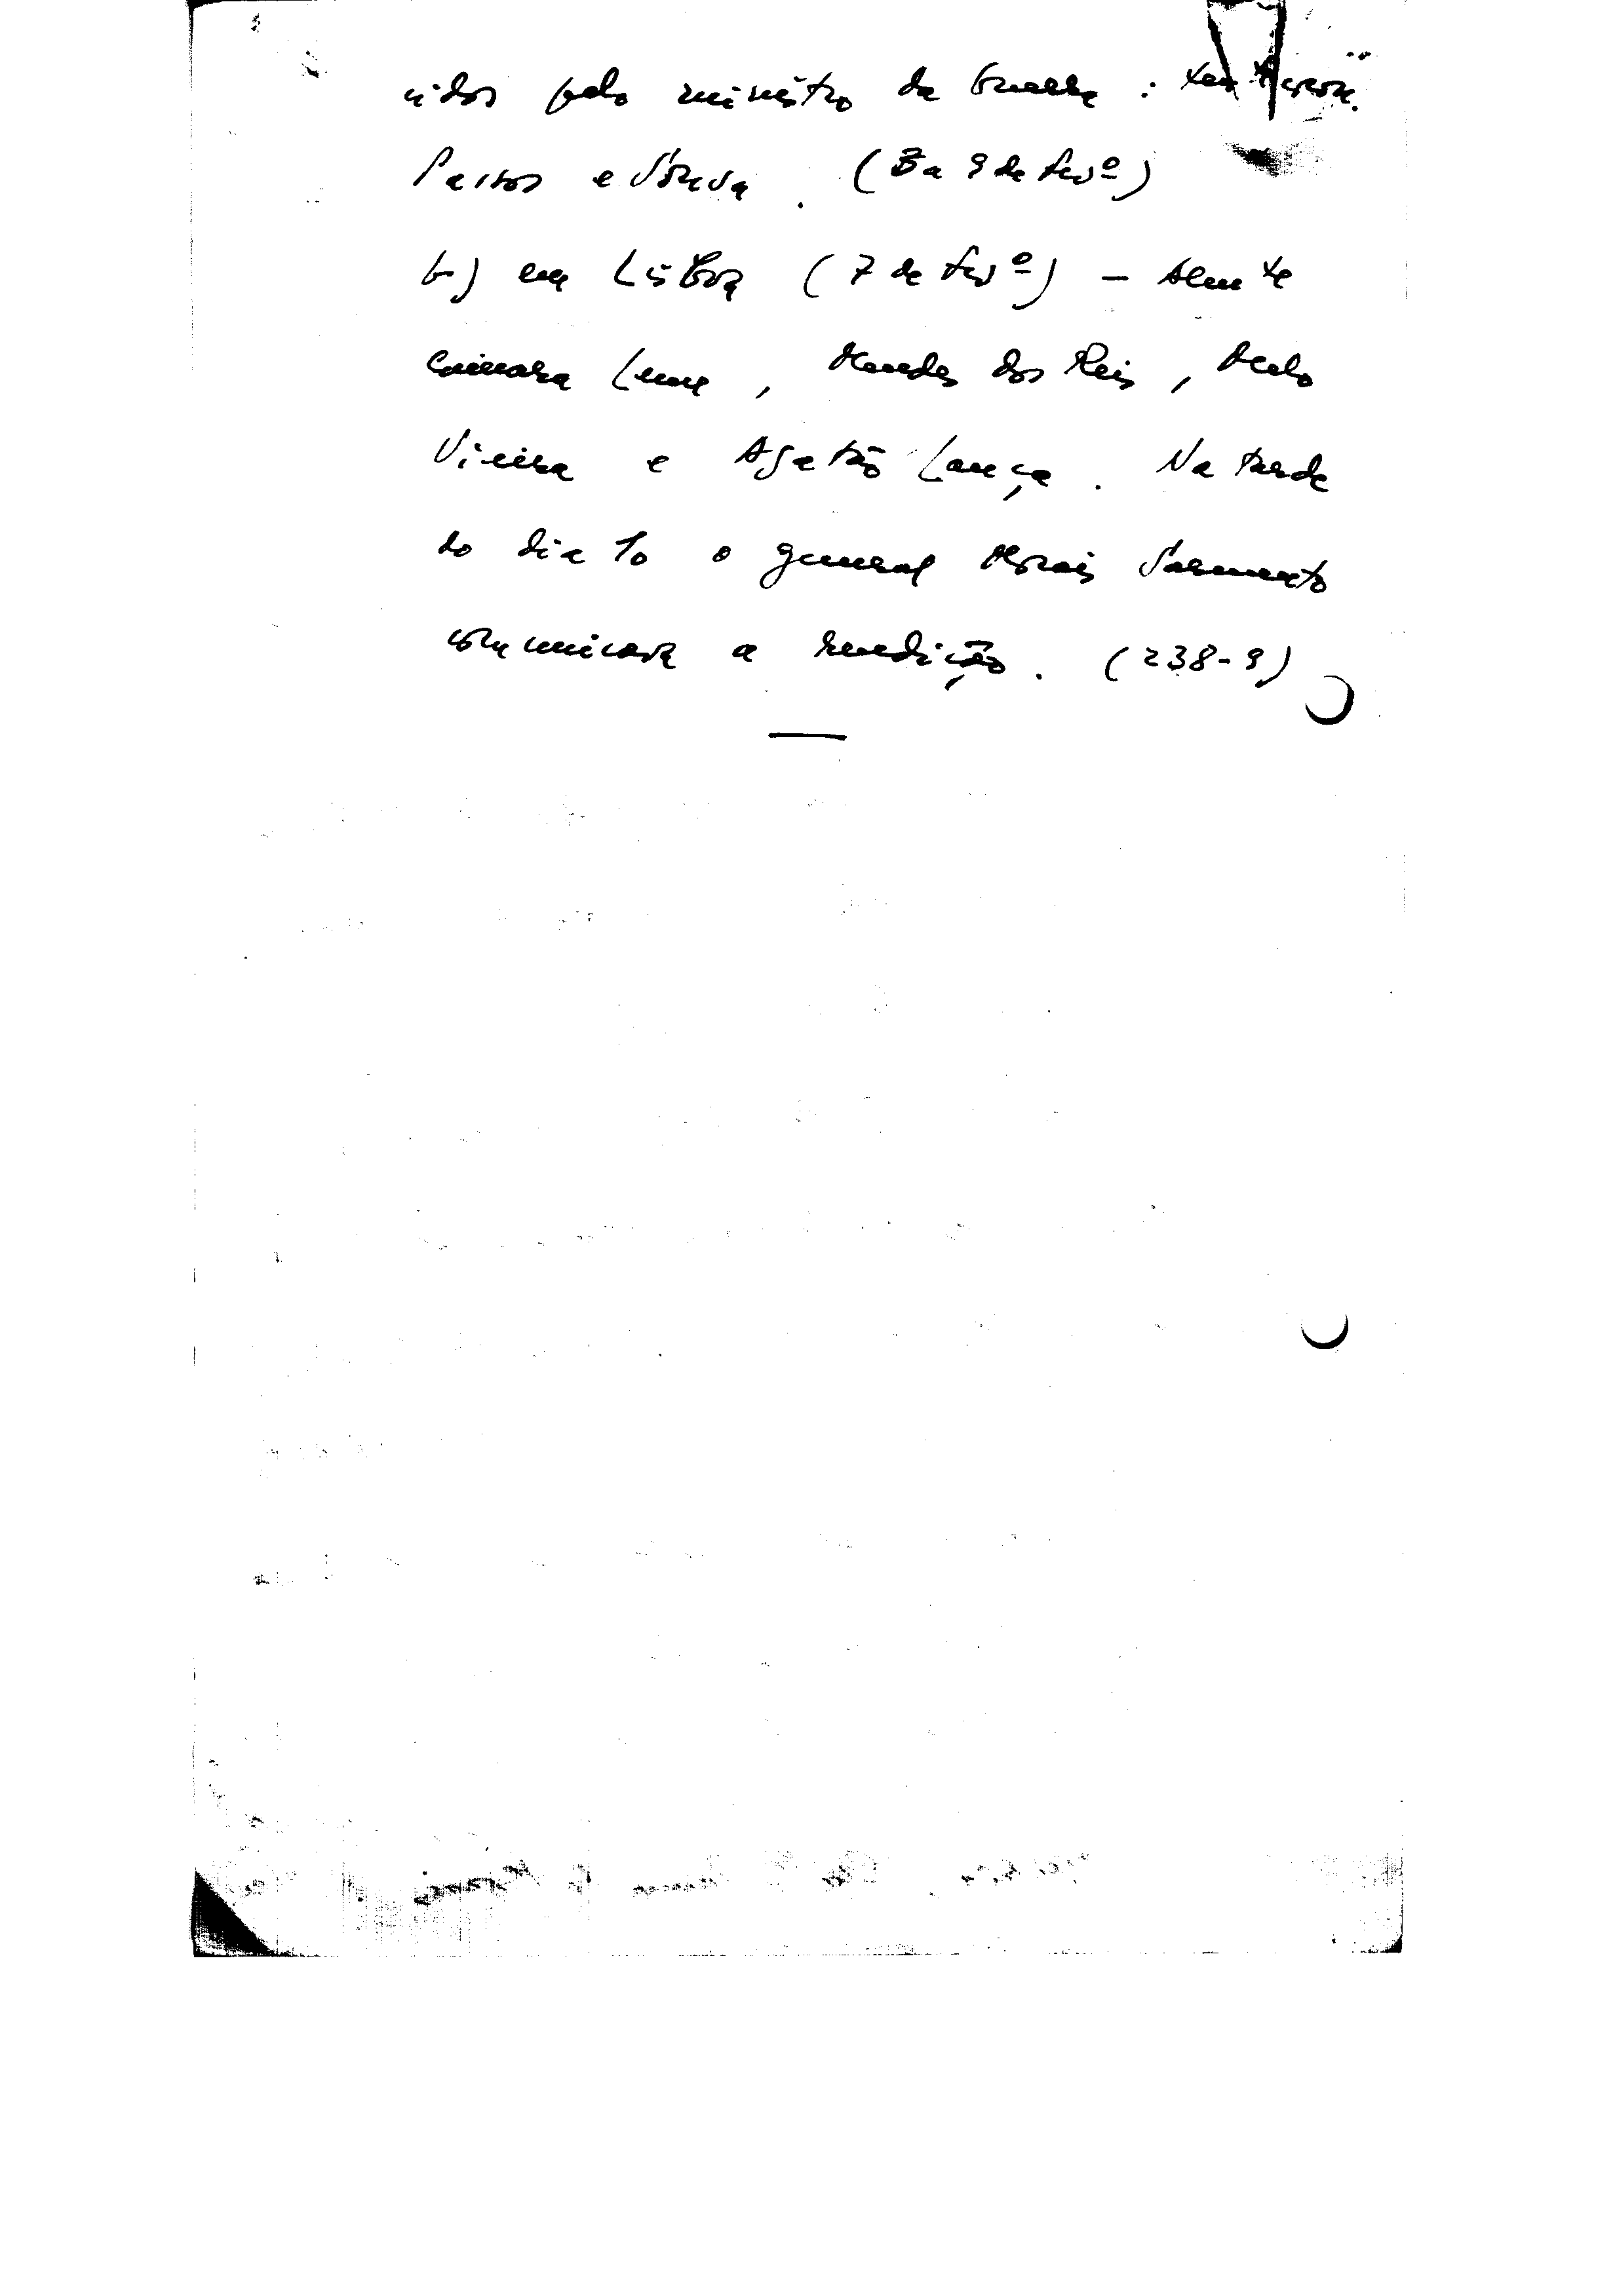 nidos pelo ministro da Guerra :
Passos e Sousa . (3 a 9 de fevº)
b) em Lisboa (7 de fevº) - Alm te
Câmara Leme , Mendes dos Reis , Melo
Vieira e Agatão Lança . Na tarde
do dia 10 o general Morais Sarmento
comunicava a rendição . (238-9)